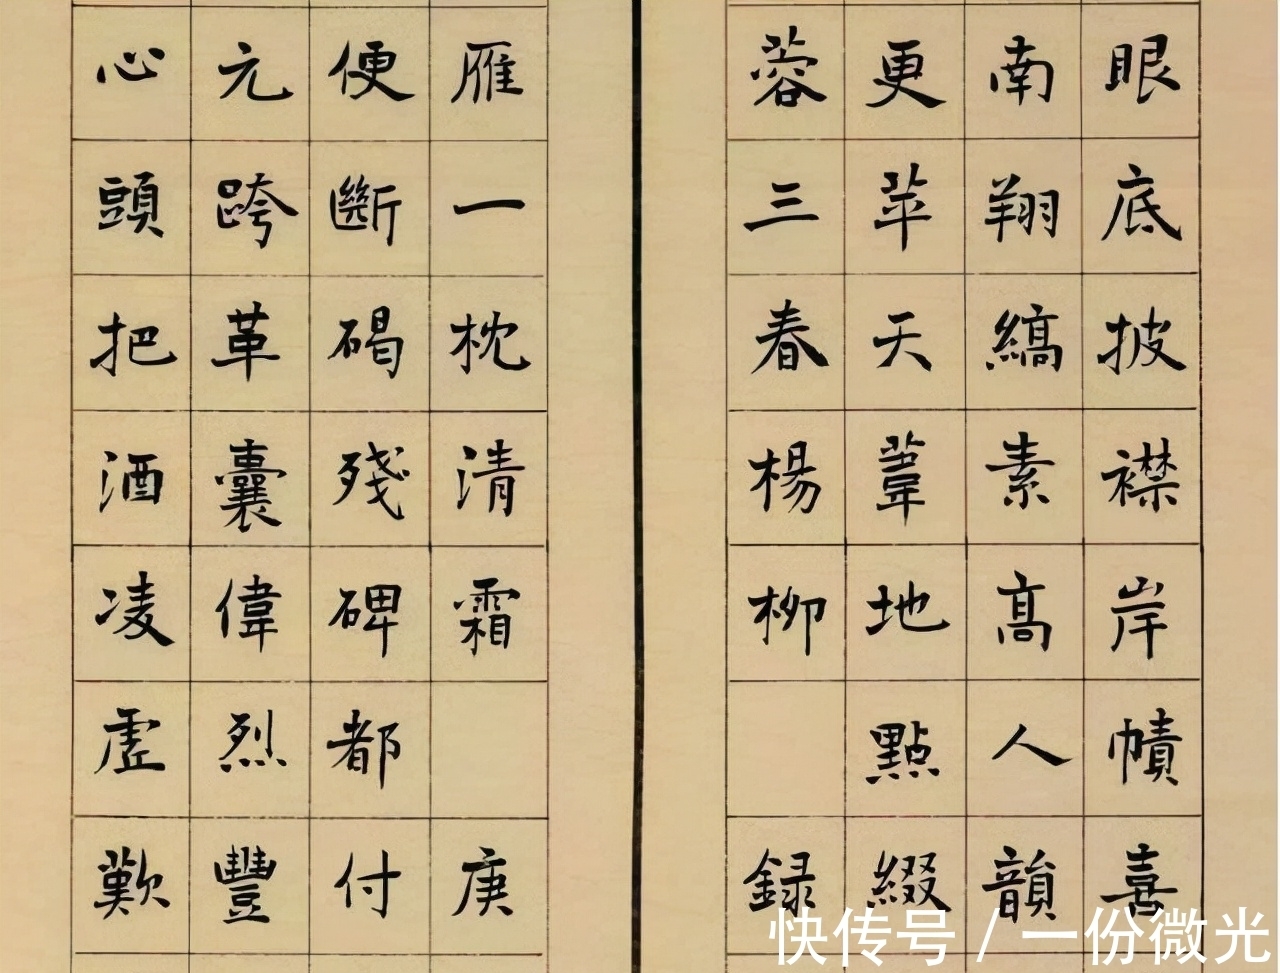 眼底披襟岸幘喜
南翔縞素高人韻
更苹天葦地點綴
蓉三春楊柳
録
雁一枕清霜
庚
便斷碣殘碑都付
元跨革囊偉烈豐
心頭把酒凌虛歎
快传号/一份微光